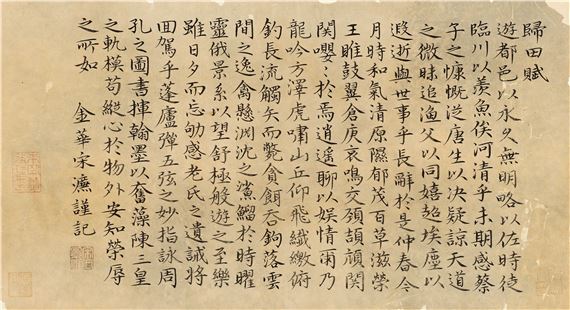 歸田賦
遊都邑以永久無明略以佐時徒
臨川以羨魚俟河清乎未期感蔡
子之慷慨從唐生以決疑諒天道
之微昧追漁父以同嬉超埃塵以
遐逝與世事乎長辭於是仲春令
月時和氣清原隰郁茂百草滋榮
王雎鼓翼倉庚哀鳴交頸頡頏関
関嚶々於焉逍遙聊以娛情爾乃
龍吟方澤虎嘯山丘仰飛纖繳俯
釣長流觸矢而斃貪餌吞鉤落雲
間之逸禽懸淵沈之鯊鰡於時曜
靈俄景系以望舒極般遊之至樂
雖日夕而忘劬感老氏之遺誡將
迴駕乎蓬廬彈五弦之妙指詠周
孔之圖書揮翰墨以奮藻陳三皇
之軌模苟縱心於物外安知榮辱
之所如 金華宋濂謹記